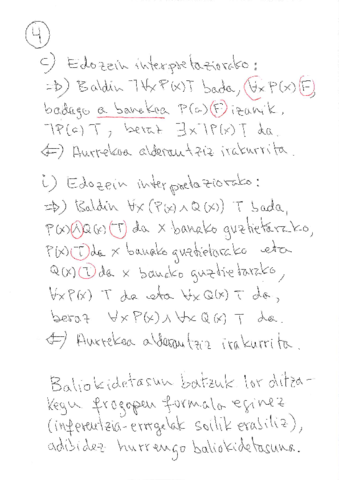 4
c) Edozein interpretaziorako:
⇒) Baldin ¬∀x P(x) T bada, ∀x P(x) F,
badago a banakoa P(a) F izanik.
¬P(a) T, beraz ∃x ¬P(x) T da.
⇐) Aurrekoa alderantziz irakurrita.
i) Edozein interpretaziorako:
⇒) Baldin ∀x (P(x) ∧ Q(x)) T bada,
P(x) ∧ Q(x) T da x banako guztietarako,
P(x) T da x banako guztietarako eta
Q(x) T da x banako guztietarako,
∀x P(x) T da eta ∀x Q(x) T da,
beraz ∀x P(x) ∧ ∀x Q(x) T da.
⇐) Aurrekoa alderantziz irakurrita.
Baliokidetasun batzuk lor ditza-
kegu frogapen formala eginez
(inferentzia-erregelak soilik erabiliz),
adibidez hurrengo baliokidetasuna.